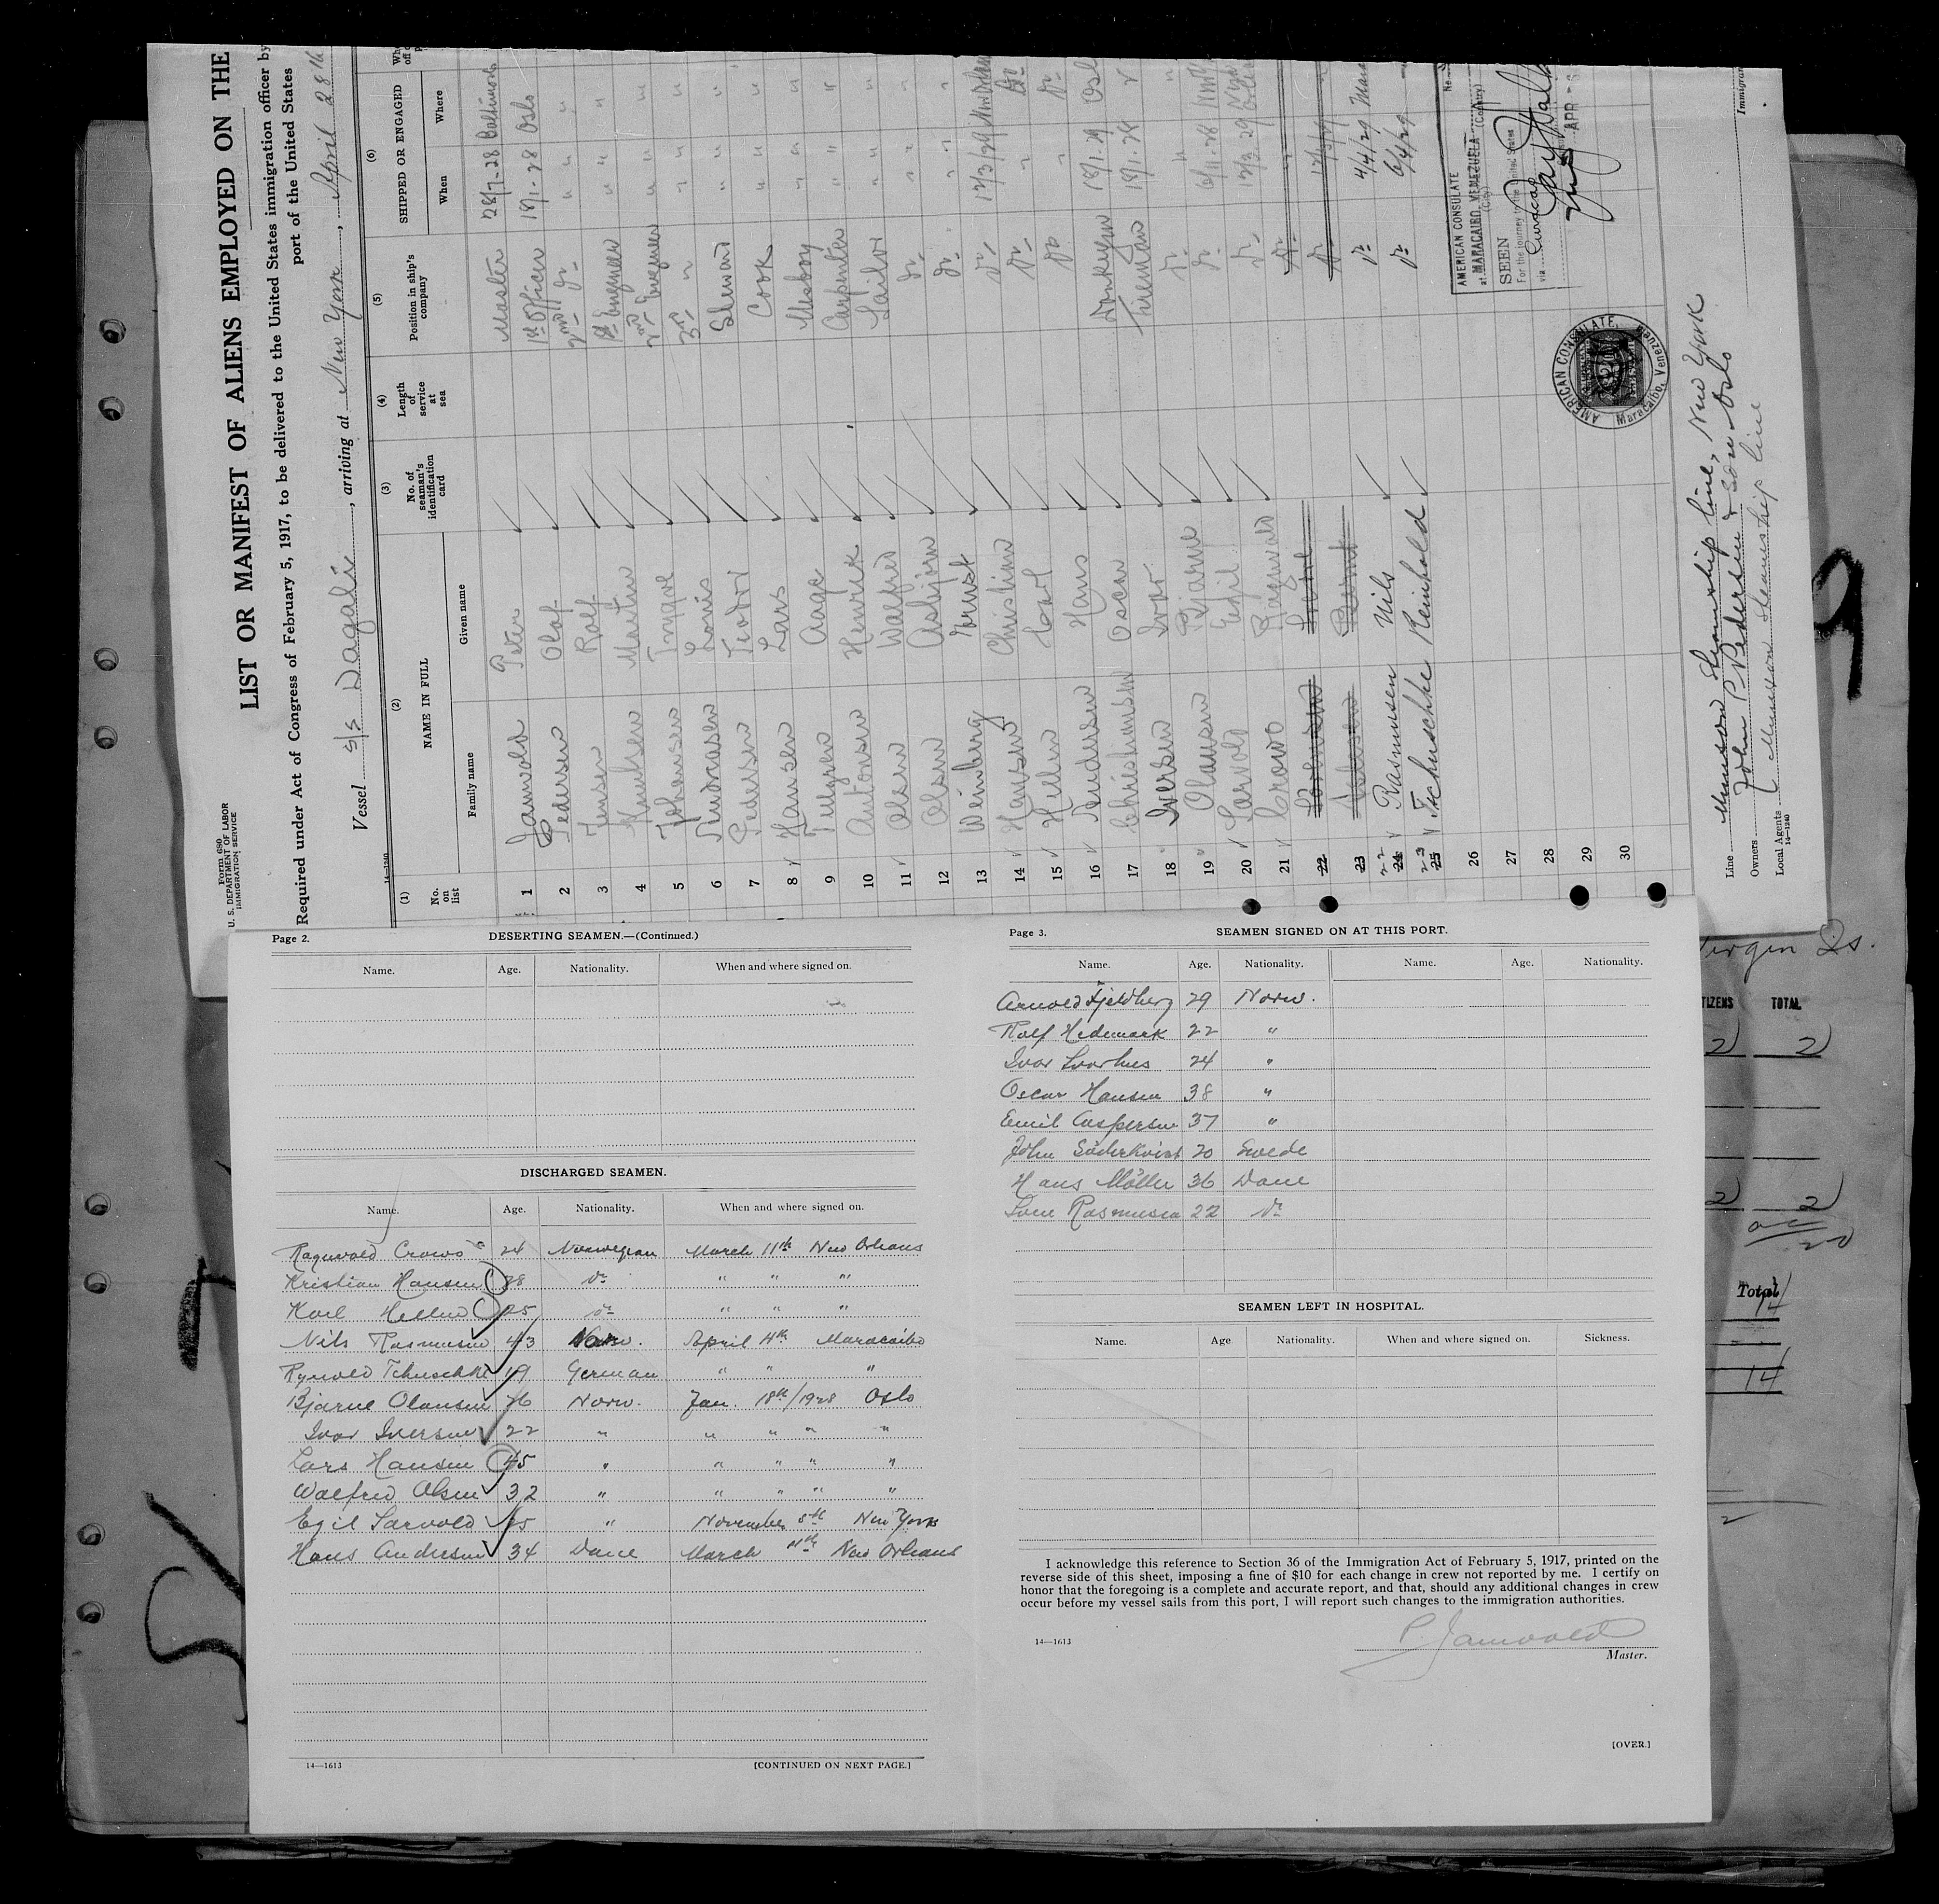 Form 680
U. S. DEPARTMENT OF LABOR
IMMIGRATION SERVICE
LIST OR MANIFEST OF ALIENS EMPLOYED ON THE
Required under Act of Congress of February 5, 1917, to be delivered to the United States immigration officer by
port of the United States
Vessel S/S Dagali, arriving at New York, April 28th
14-1240
(1) (2) (3) (4) (5) (6)
No. on list NAME IN FULL No. of seaman's identification card Length of service at sea Position in ship's company SHIPPED OR ENGAGED
Family name Given name When Where
1 Jamvold Peter Master 28/7-28 Baltimore
2 Pedersen Olaf 1st Officer 18/1-28 Oslo
3 Jensen Rolf 2nd do " "
4 Knutsen Martin 1st Engineer " " "
5 Johansen Trygve 2nd Engineer " " "
6 Andreasen Louis 3rd " " " "
7 Pedersen Teodor Steward " " "
8 Hansen Lars Cook " " "
9 Tellgren Aage Messboy " " "
10 Antonsen Henrik Carpenter " " "
11 Olsen Walfred Sailor " " "
12 Olsen Asbjørn do " " "
13 Weinberg Ernst do " " "
14 Hansen Christian do 12/3/29 New Orleans
15 Hellen Carl do " do
16 Andersen Hans do " do
17 Christiansen Oscar Donkeyman 18/1-29 Oslo
18 Iversen Ivor Fireman 18/1-28 "
19 Olausen Bjarne do " "
20 Sarvold Egil do 6/11-28 New York
21 Crowo Ragnvald do 12/3 29 New Orleans
22
23 Bernt do 12/3/29
22 24 Rasmussen Nils do 4/4/29
23 25 Tschuschke Reinhold do 6/4/29
26
27
28
29
30
AMERICAN CONSULATE
at MARACAIBO, VENEZUELA
(City) (Country)
No.
SEEN
For the journey to the United States
via Curacao
APR
AMERICAN CONSULATE,
Maracaibo, Venezuela
Line Munson Steamship Line, New York
Owners John P Pedersen & Sön Oslo
Local Agents Munson Steamship Line
14-1240
Immigrant
Virgin Is.
TIZENS TOTAL
2 2
2 2
20
Total
14
14
2
Page 2. DESERTING SEAMEN.—(Continued.)
Name. Age. Nationality. When and where signed on.
DISCHARGED SEAMEN.
Name. Age. Nationality. When and where signed on.
Ragnvald Crowo 24 Norwegian March 11th New Orleans
Kristian Hansen 28 do " " "
Karl Hellen 25 do " " "
Nils Rasmusen 43 Norw. April 4th Maracaibo
Rynold Tchuschke 19 German " " "
Bjarne Olausen 26 Norw. Jan. 18th/1928 Oslo
Ivar Iversen 22 " " " " "
Lars Hansen 45 " " " " "
Walfred Olsen 32 " " " " "
Egil Sarvold 25 " November 8th New York
Hans Andersen 34 Dane March 11th New Orleans
14—1613 [CONTINUED ON NEXT PAGE.]
Page 3. SEAMEN SIGNED ON AT THIS PORT.
Name. Age. Nationality. Name. Age. Nationality.
Arnold Fjeldberg 29 Norw.
Rolf Hedemark 22 "
Ivar Svorhus 24 "
Oscar Hansen 38 "
Emil Caspersen 37 "
John Söderkvist 20 Swede
Hans Möller 36 Dane
Sven Rasmusen 22 do
SEAMEN LEFT IN HOSPITAL.
Name. Age Nationality. When and where signed on. Sickness.
I acknowledge this reference to Section 36 of the Immigration Act of February 5, 1917, printed on the
reverse side of this sheet, imposing a fine of $10 for each change in crew not reported by me. I certify on
honor that the foregoing is a complete and accurate report, and that, should any additional changes in crew
occur before my vessel sails from this port, I will report such changes to the immigration authorities.
14—1613
P. Jamvold
Master.
[OVER.]